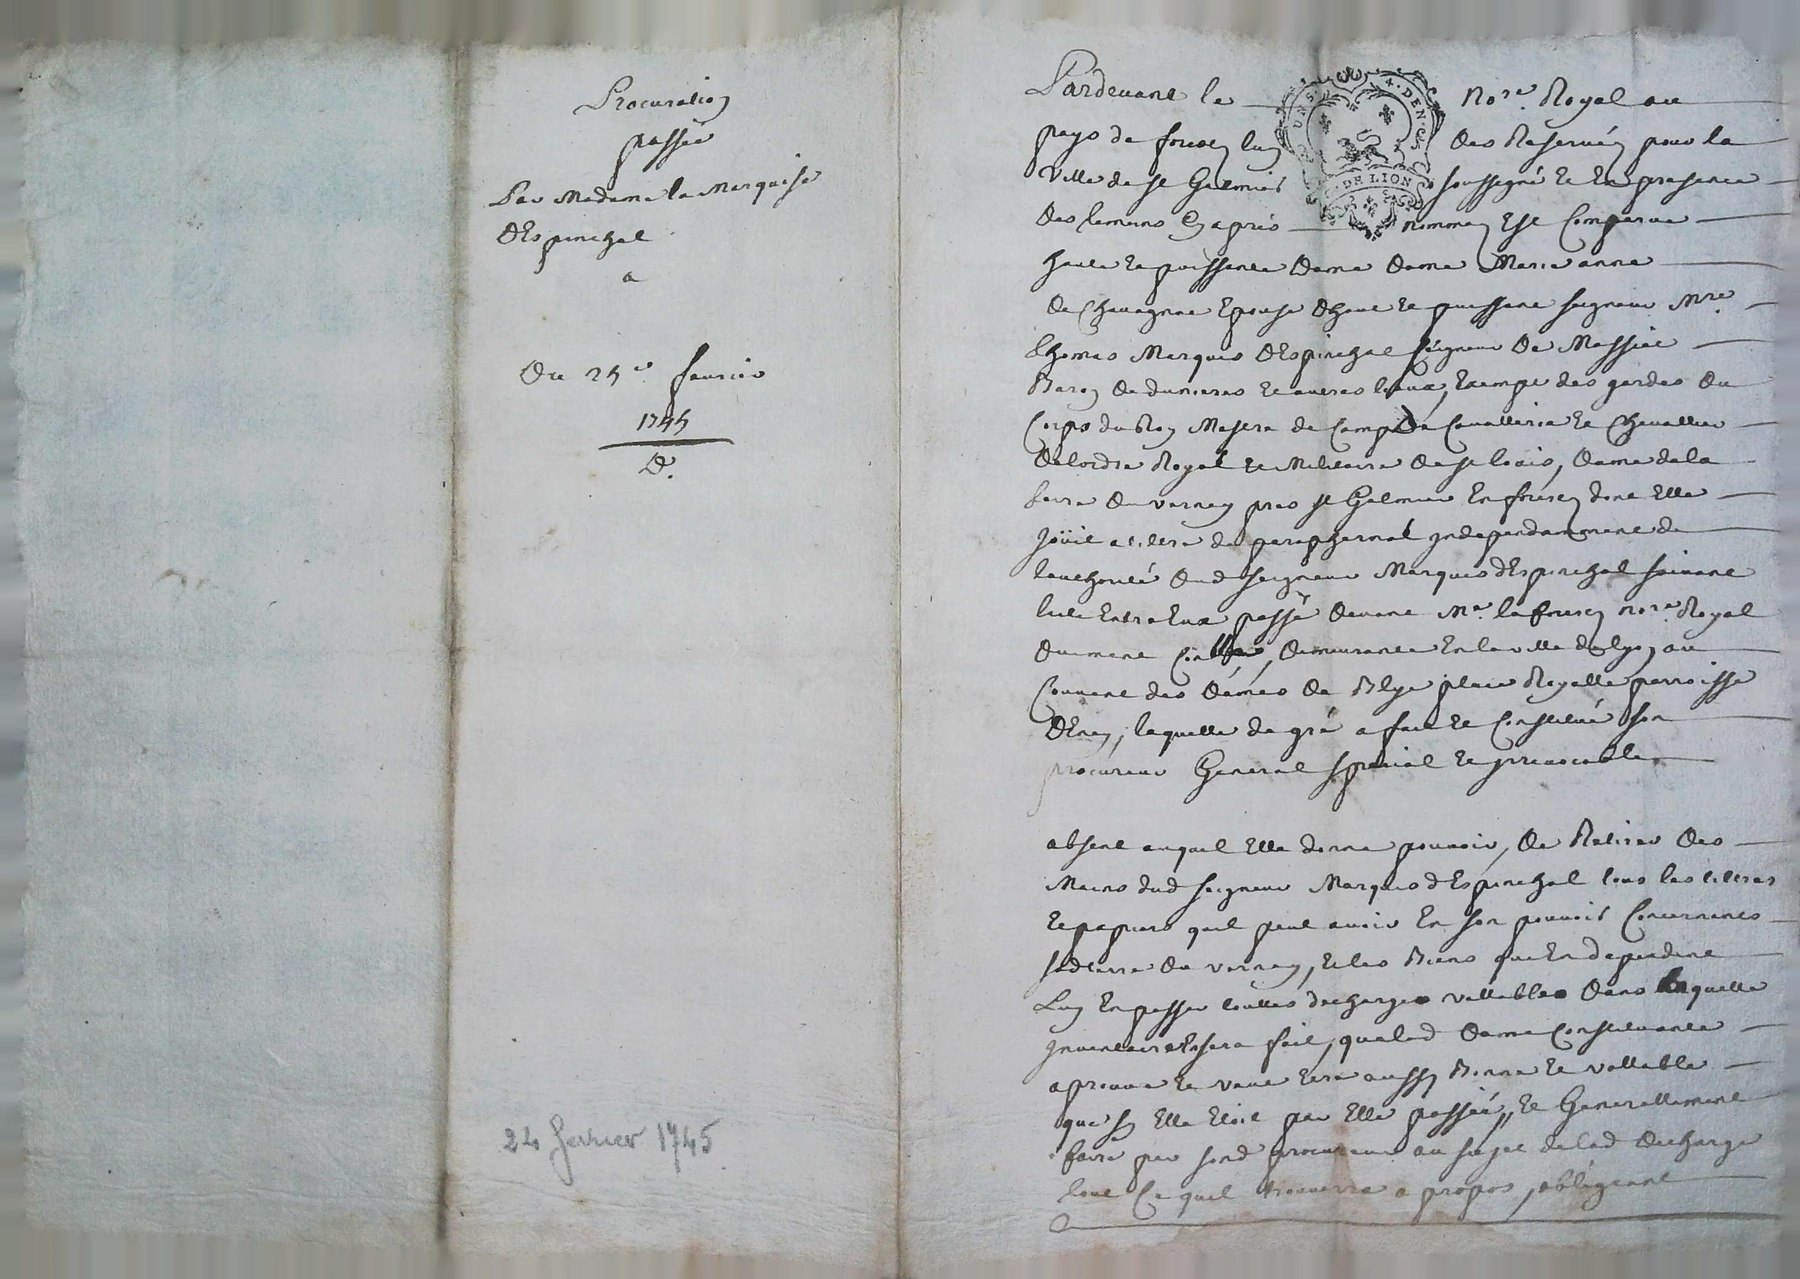 Procuration
passée
Par Madame la Marquise
DEspinchal
a
Du 24e. feurier
1745
D.
24 fevrier 1745
Pardeuant le No.re Royal au
UN S. 4. DEN.ES
DE LION
pays de forest, lun des Reserués pour la
Ville de st Galmier soussigné Et En presence
des temoins Cy apres nommés Est Comparue
haute Et puissante dame dame Marie anne
de Chauagnac Epouse dhaut Et puissant seigneur Mre.
thomas Marquis dEspinchal seigneur De Massiac
Baron de dunieres Et autres lieux, Exempt des gardes du
Corps du Roy Mestre de Camp de Cauallerie Et Cheuallier
delordre Royal Et Militaire de st louis, dame dela
terre du verney pres st Galmier En forest, dont Elle
joüit a tiltre de paraphernal independamment de
lauthorité dud seigneur Marquis dEspinchal suiuant
lacte Entre Eux passé deuant Me. laforest no.re Royal
duement, demeurante En la ville de lyon au
Couuent des dames de Blye place Royalle parroisse
dEnay, laquelle de gré a fait Et Constitué son
procureur General special Et irreuocable
absent auquel Elle donne pouuoir, de Retirer des
Mains dud seigneur Marquis dEspinchal tous les tiltres
Et papiers quil peut auoir En son pouuoir Concernants
sad terre du verney, Et les Biens que En dependent
Luy En passer touttes decharges vallables dans laquelle
inuentaire En sera fait, que lad dame Constituante
aprouue Et veut Etre aussy Bonne Et vallable
que sy Elle Etoit par Elle passée, Et Generallement
faire par sond procureur au sujet de lad decharge
tout Ce quil trouuerra a propos, obligeant